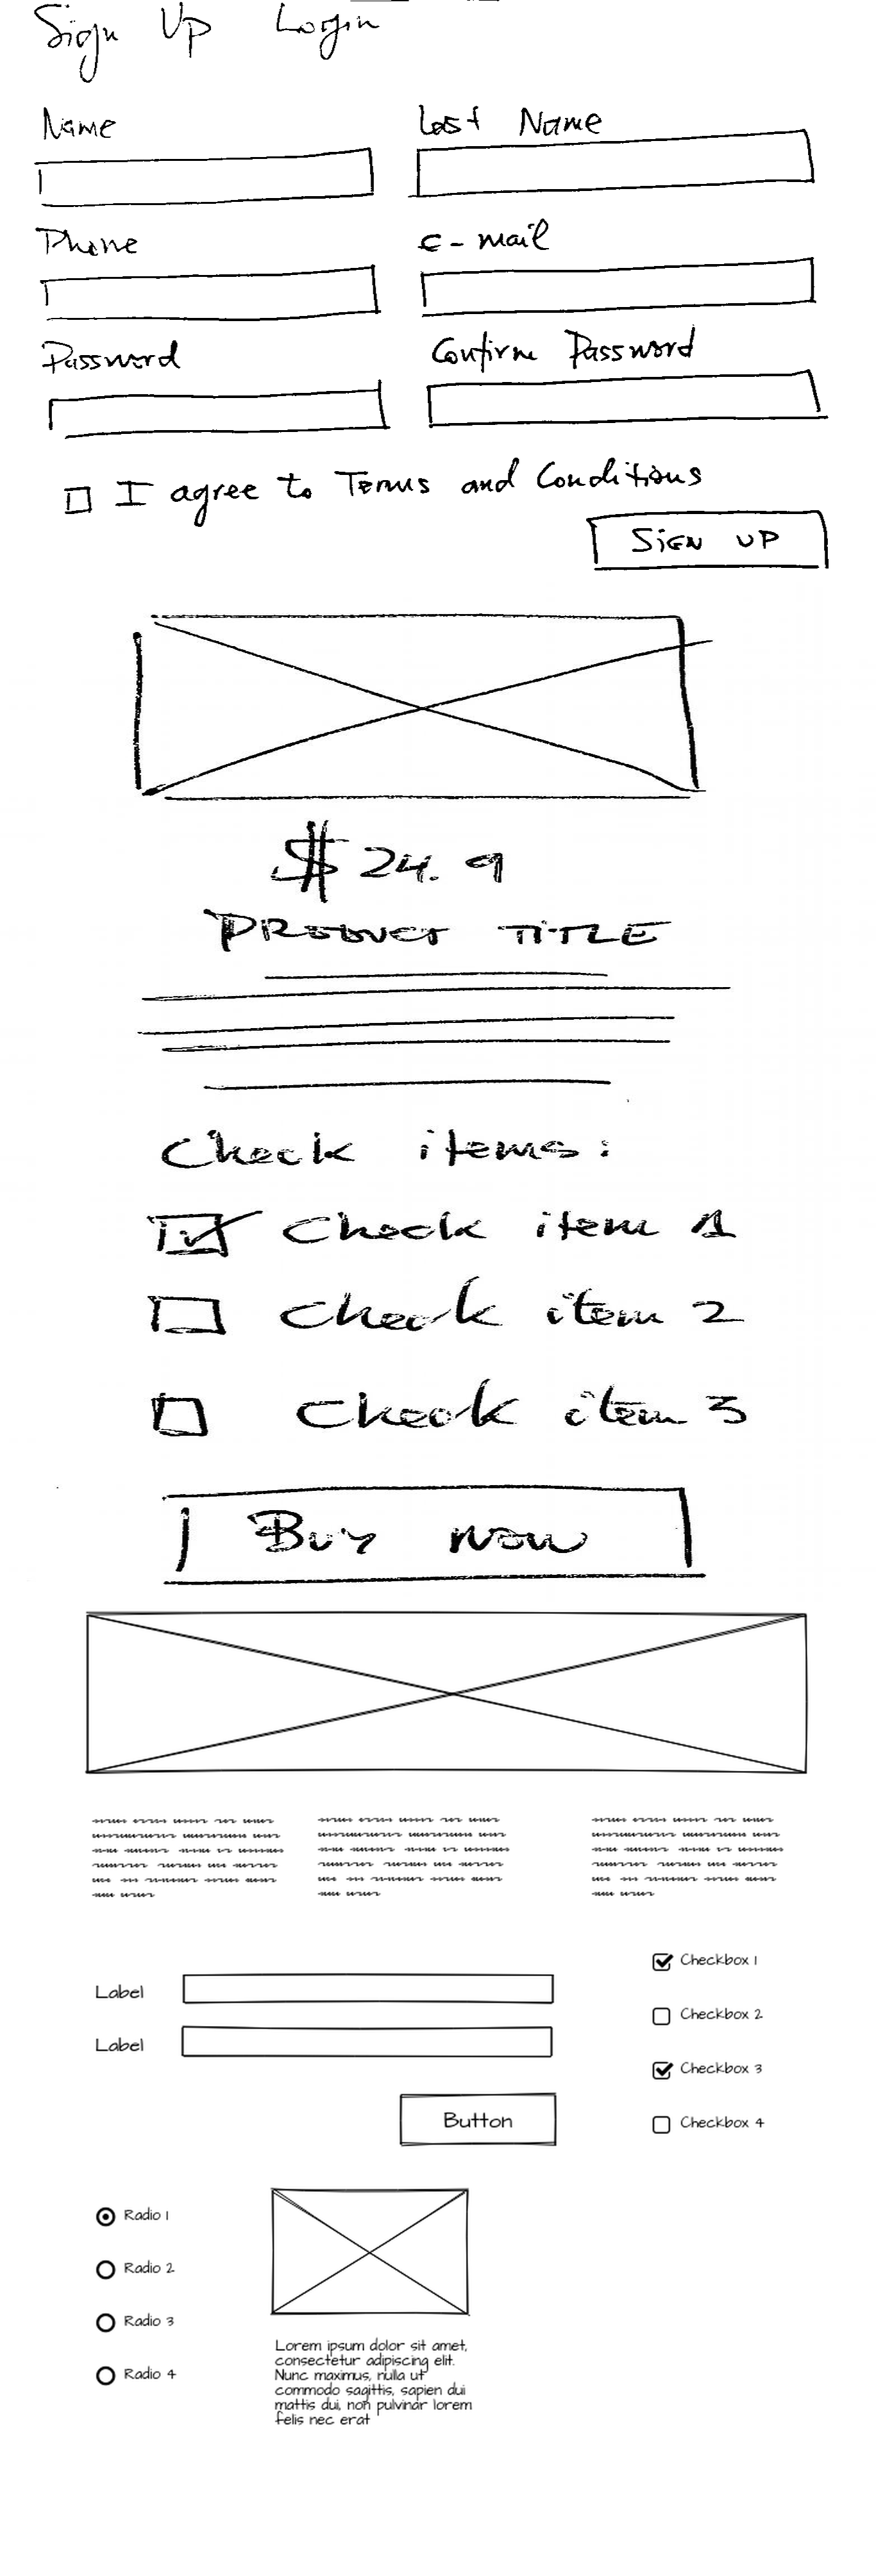 Sign Up Login
Name Last Name
Phone e-mail
Password Confirm Password
I agree to Terms and Conditions
SIGN UP
$ 24.9
PRODUCT TITLE
Check items:
Check item 1
Check item 2
Check item 3
Buy now
Checkbox 1
Label
Checkbox 2
Label
Checkbox 3
Button
Checkbox 4
Radio 1
Radio 2
Radio 3
Radio 4
Lorem ipsum dolor sit amet,
consectetur adipiscing elit.
Nunc maximus, nulla ut
commodo sagittis, sapien dui
mattis dui, non pulvinar lorem
felis nec erat